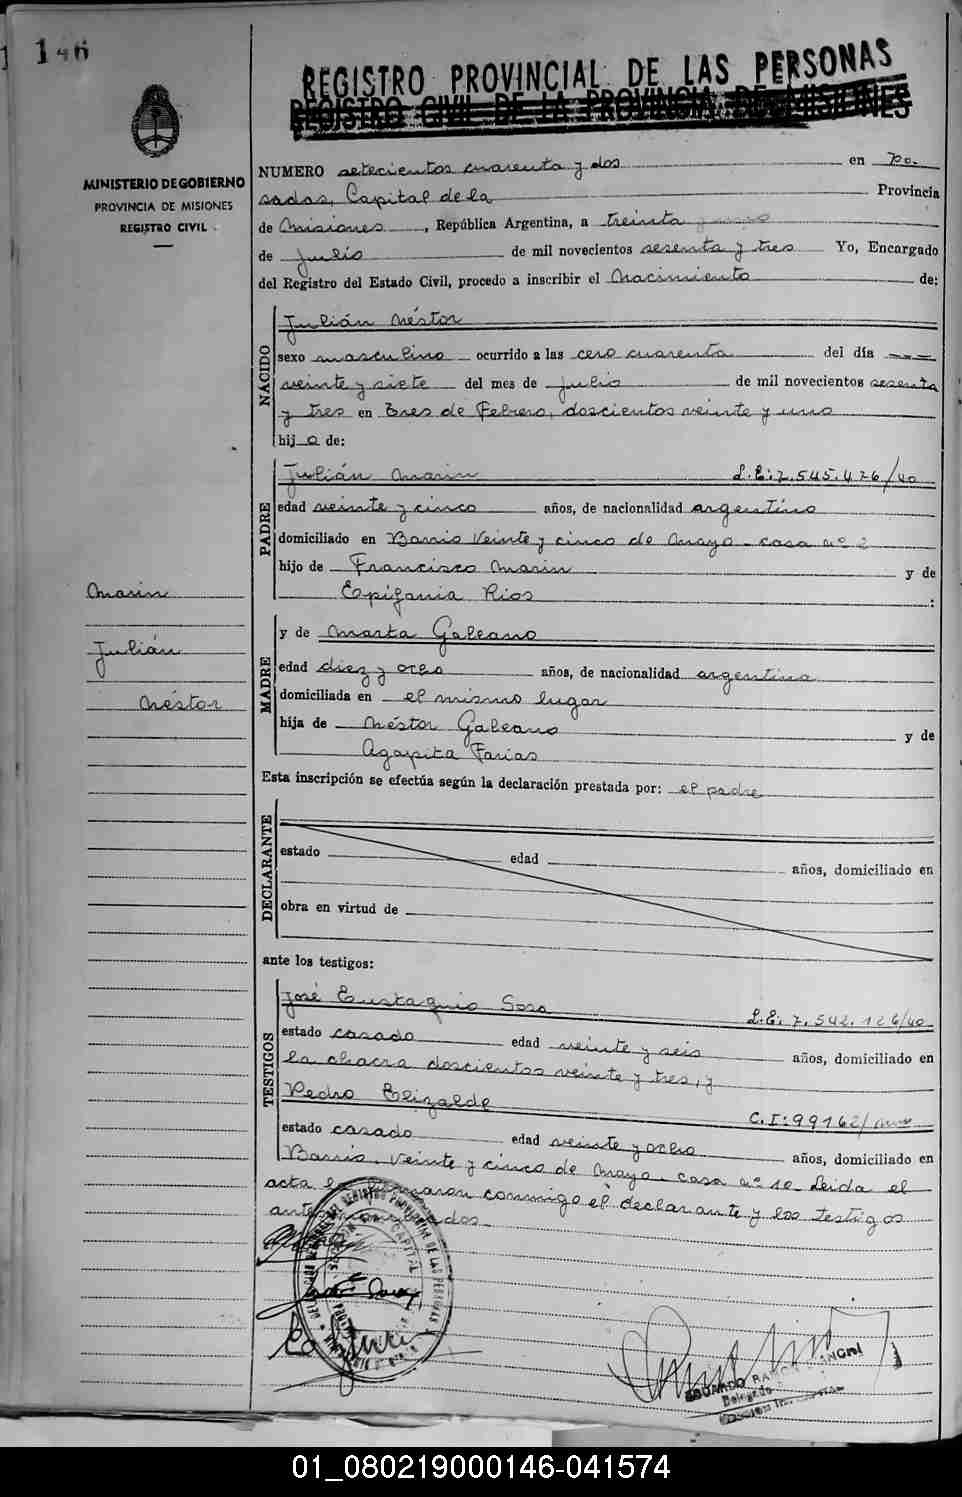 146
MINISTERIO DE GOBIERNO
PROVINCIA DE MISIONES
REGISTRO CIVIL
REGISTRO PROVINCIAL DE LAS PERSONAS
REGISTRO CIVIL DE LA PROVINCIA DE MISIONES
NUMERO setecientos cuarenta y dos en Po-
sadas, Capital de la Provincia
de Misiones, República Argentina, a treinta y
de Julio de mil novecientos sesenta y tres Yo, Encargado
del Registro del Estado Civil, procedo a inscribir el Nacimiento de:
NACIDO
Julián Néstor
sexo masculino ocurrido a las cero cuarenta del día
veinte y siete del mes de Julio de mil novecientos sesenta
y tres en Tres de Febrero, doscientos veinte y uno
hijo de:
PADRE
Julián Marin L.E:7.545.426/40
edad veinte y cinco años, de nacionalidad argentino
domiciliado en Barrio Veinte y cinco de Mayo - casa nº 2
hijo de Francisco Marin y de
Epifania Rios :
Marin
Julián
Néstor
MADRE
y de Marta Galeano
edad diez y ocho años, de nacionalidad argentina
domiciliada en el mismo lugar
hija de Néstor Galeano y de
Agapita Farias
Esta inscripción se efectúa según la declaración prestada por: el padre
DECLARANTE
estado edad años, domiciliado en
obra en virtud de
ante los testigos:
TESTIGOS
José Eustaquio Sosa L.E: 7.542.126/40
estado casado edad veinte y seis años, domiciliado en
la chacra doscientos veinte y tres, y
Pedro Elizalde C.I:99162/
estado casado edad veinte y ocho años, domiciliado en
Barrio, Veinte y cinco de Mayo - casa nº 10. Leida el
acta la conmigo el declarante y los testigos
José Sosa
EDUARDO
Delegado
01_080219000146-041574